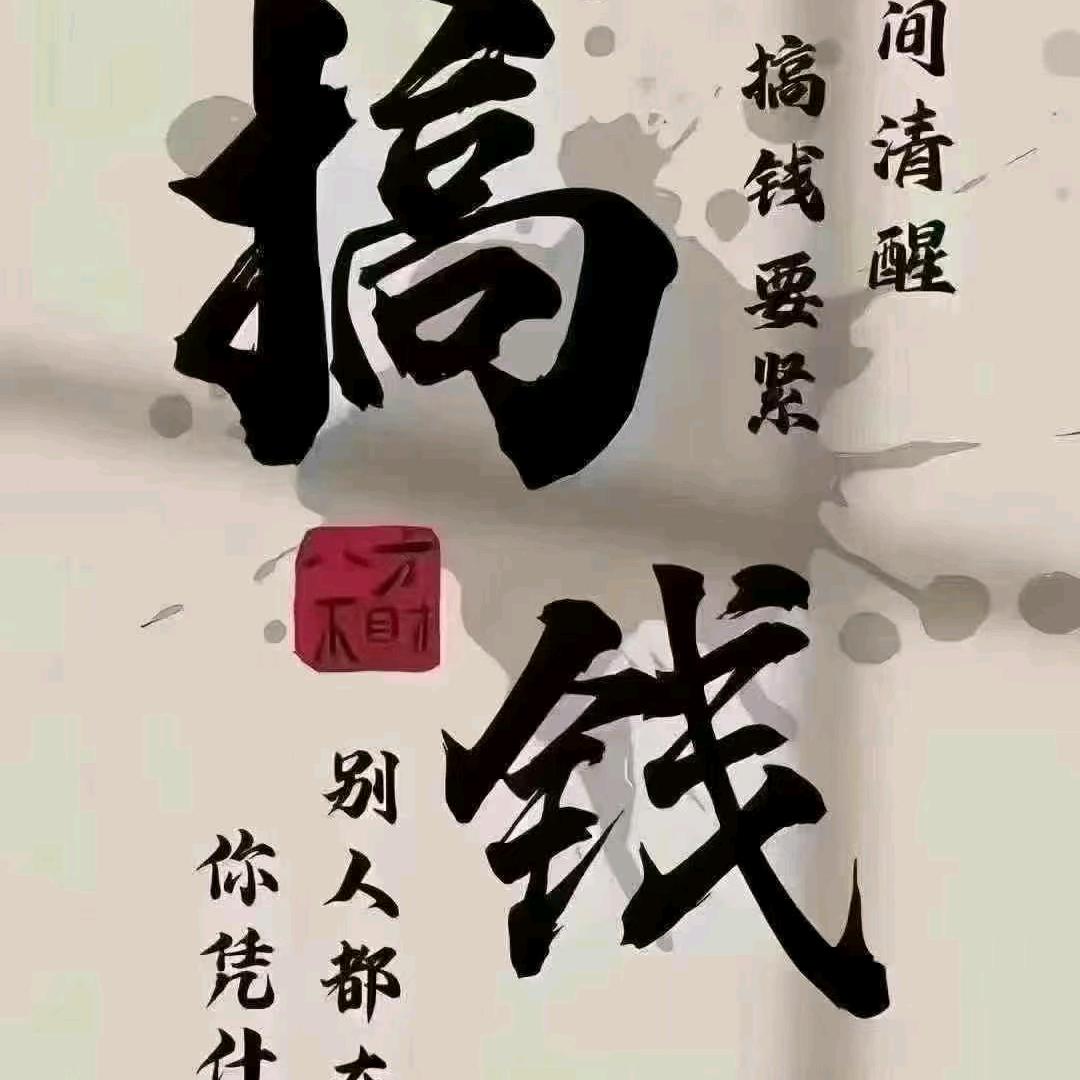 间清醒
搞钱要紧
搞
钱
八方
财
别人都
你凭什